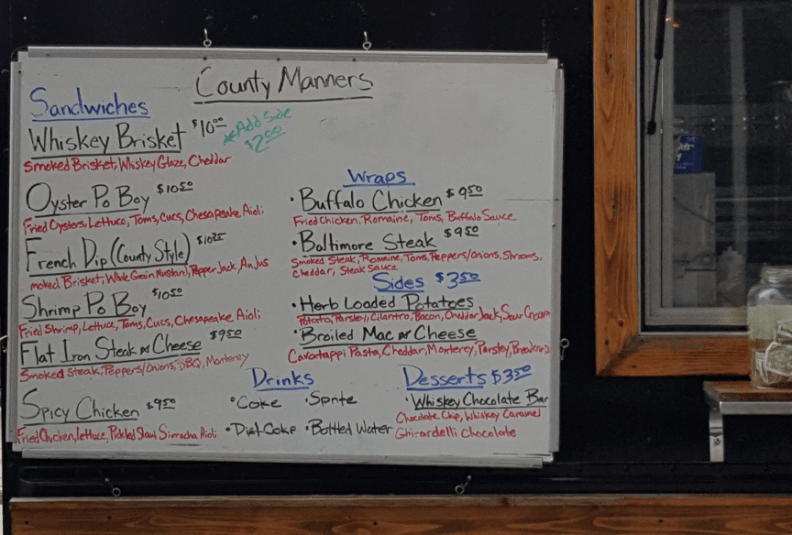 County Manners
Sandwiches
Whiskey Brisket $10.00
Add Side
$2.00
Smoked Brisket, Whiskey Glaze, Cheddar
Oyster Po Boy $10.50
Fried Oysters, Lettuce, Toms, Cucs, Chesapeake Aioli
French Dip (County Style) $10.25
moked Brisket, Whole Grain Mustard, Pepper Jack, Au Jus
Shrimp Po Boy $10.50
Fried Shrimp, Lettuce, Toms, Cucs, Chesapeake Aioli
Flat Iron Steak & Cheese $9.50
Smoked Steak, Peppers/Onions, BBQ, Monterey
Spicy Chicken $9.50
Fried Chicken, Lettuce, Pickled Slaw, Sirracha Aioli
Wraps
• Buffalo Chicken $9.50
Fried Chicken, Romaine, Toms, Buffalo Sauce
• Baltimore Steak $9.50
Smoked Steak, Romaine, Toms, Peppers/Onions, Shrooms,
Cheddar, Steak Sauce
Sides $3.50
• Herb Loaded Potatoes
Potato, Parsley, Cilantro, Bacon, Cheddar Jack, Sour Cream
• Broiled Mac & Cheese
Cavartappi Pasta, Cheddar, Monterey, Parsley,
Drinks
• Coke • Sprite
• Diet Coke • Bottled Water
Desserts $3.50
• Whiskey Chocolate Bar
Chocolate Chip, Whiskey Caramel
Ghirardelli Chocolate